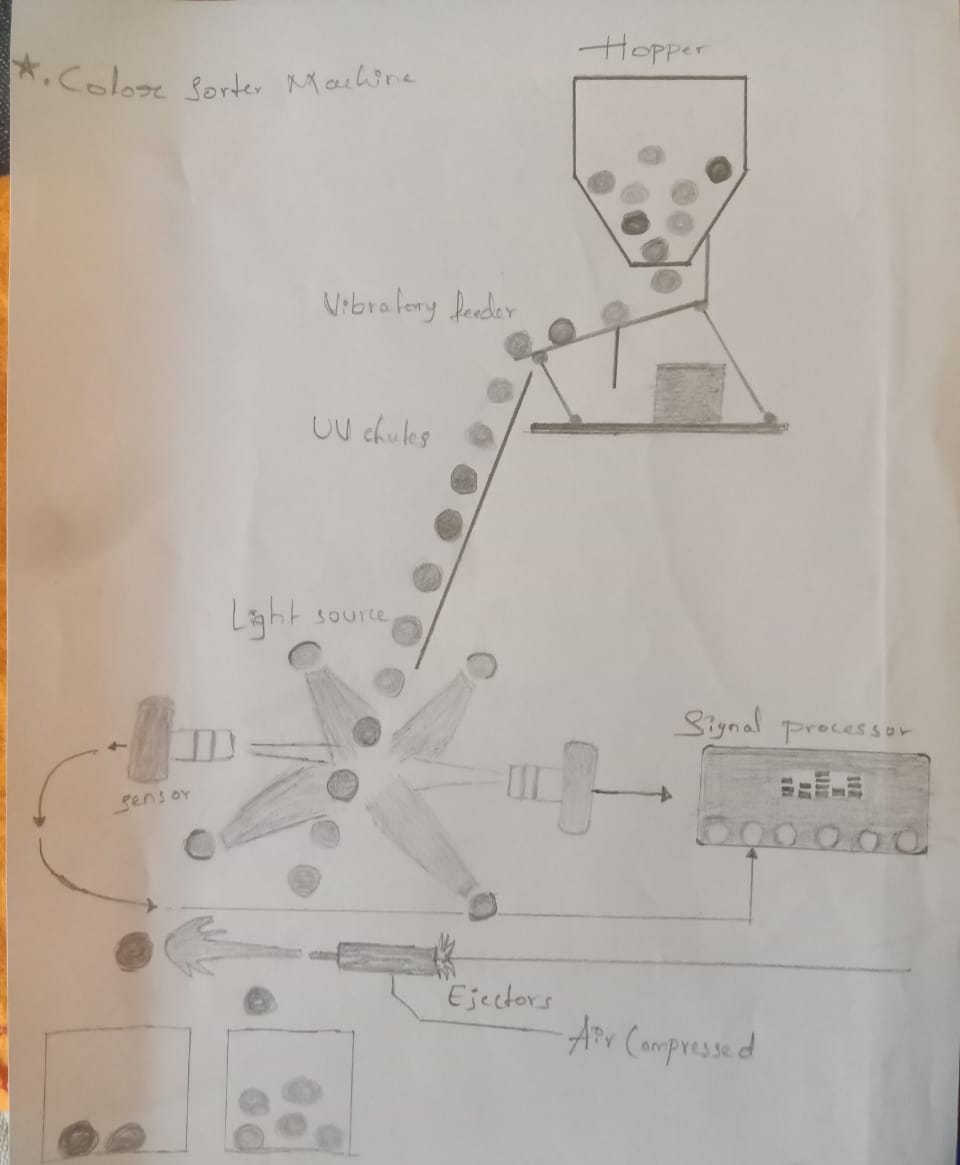 ★. Color Sorter Machine
Hopper
Vibratory feeder
UV chutes
Light source
Signal processor
sensor
Ejectors
Air Compressed